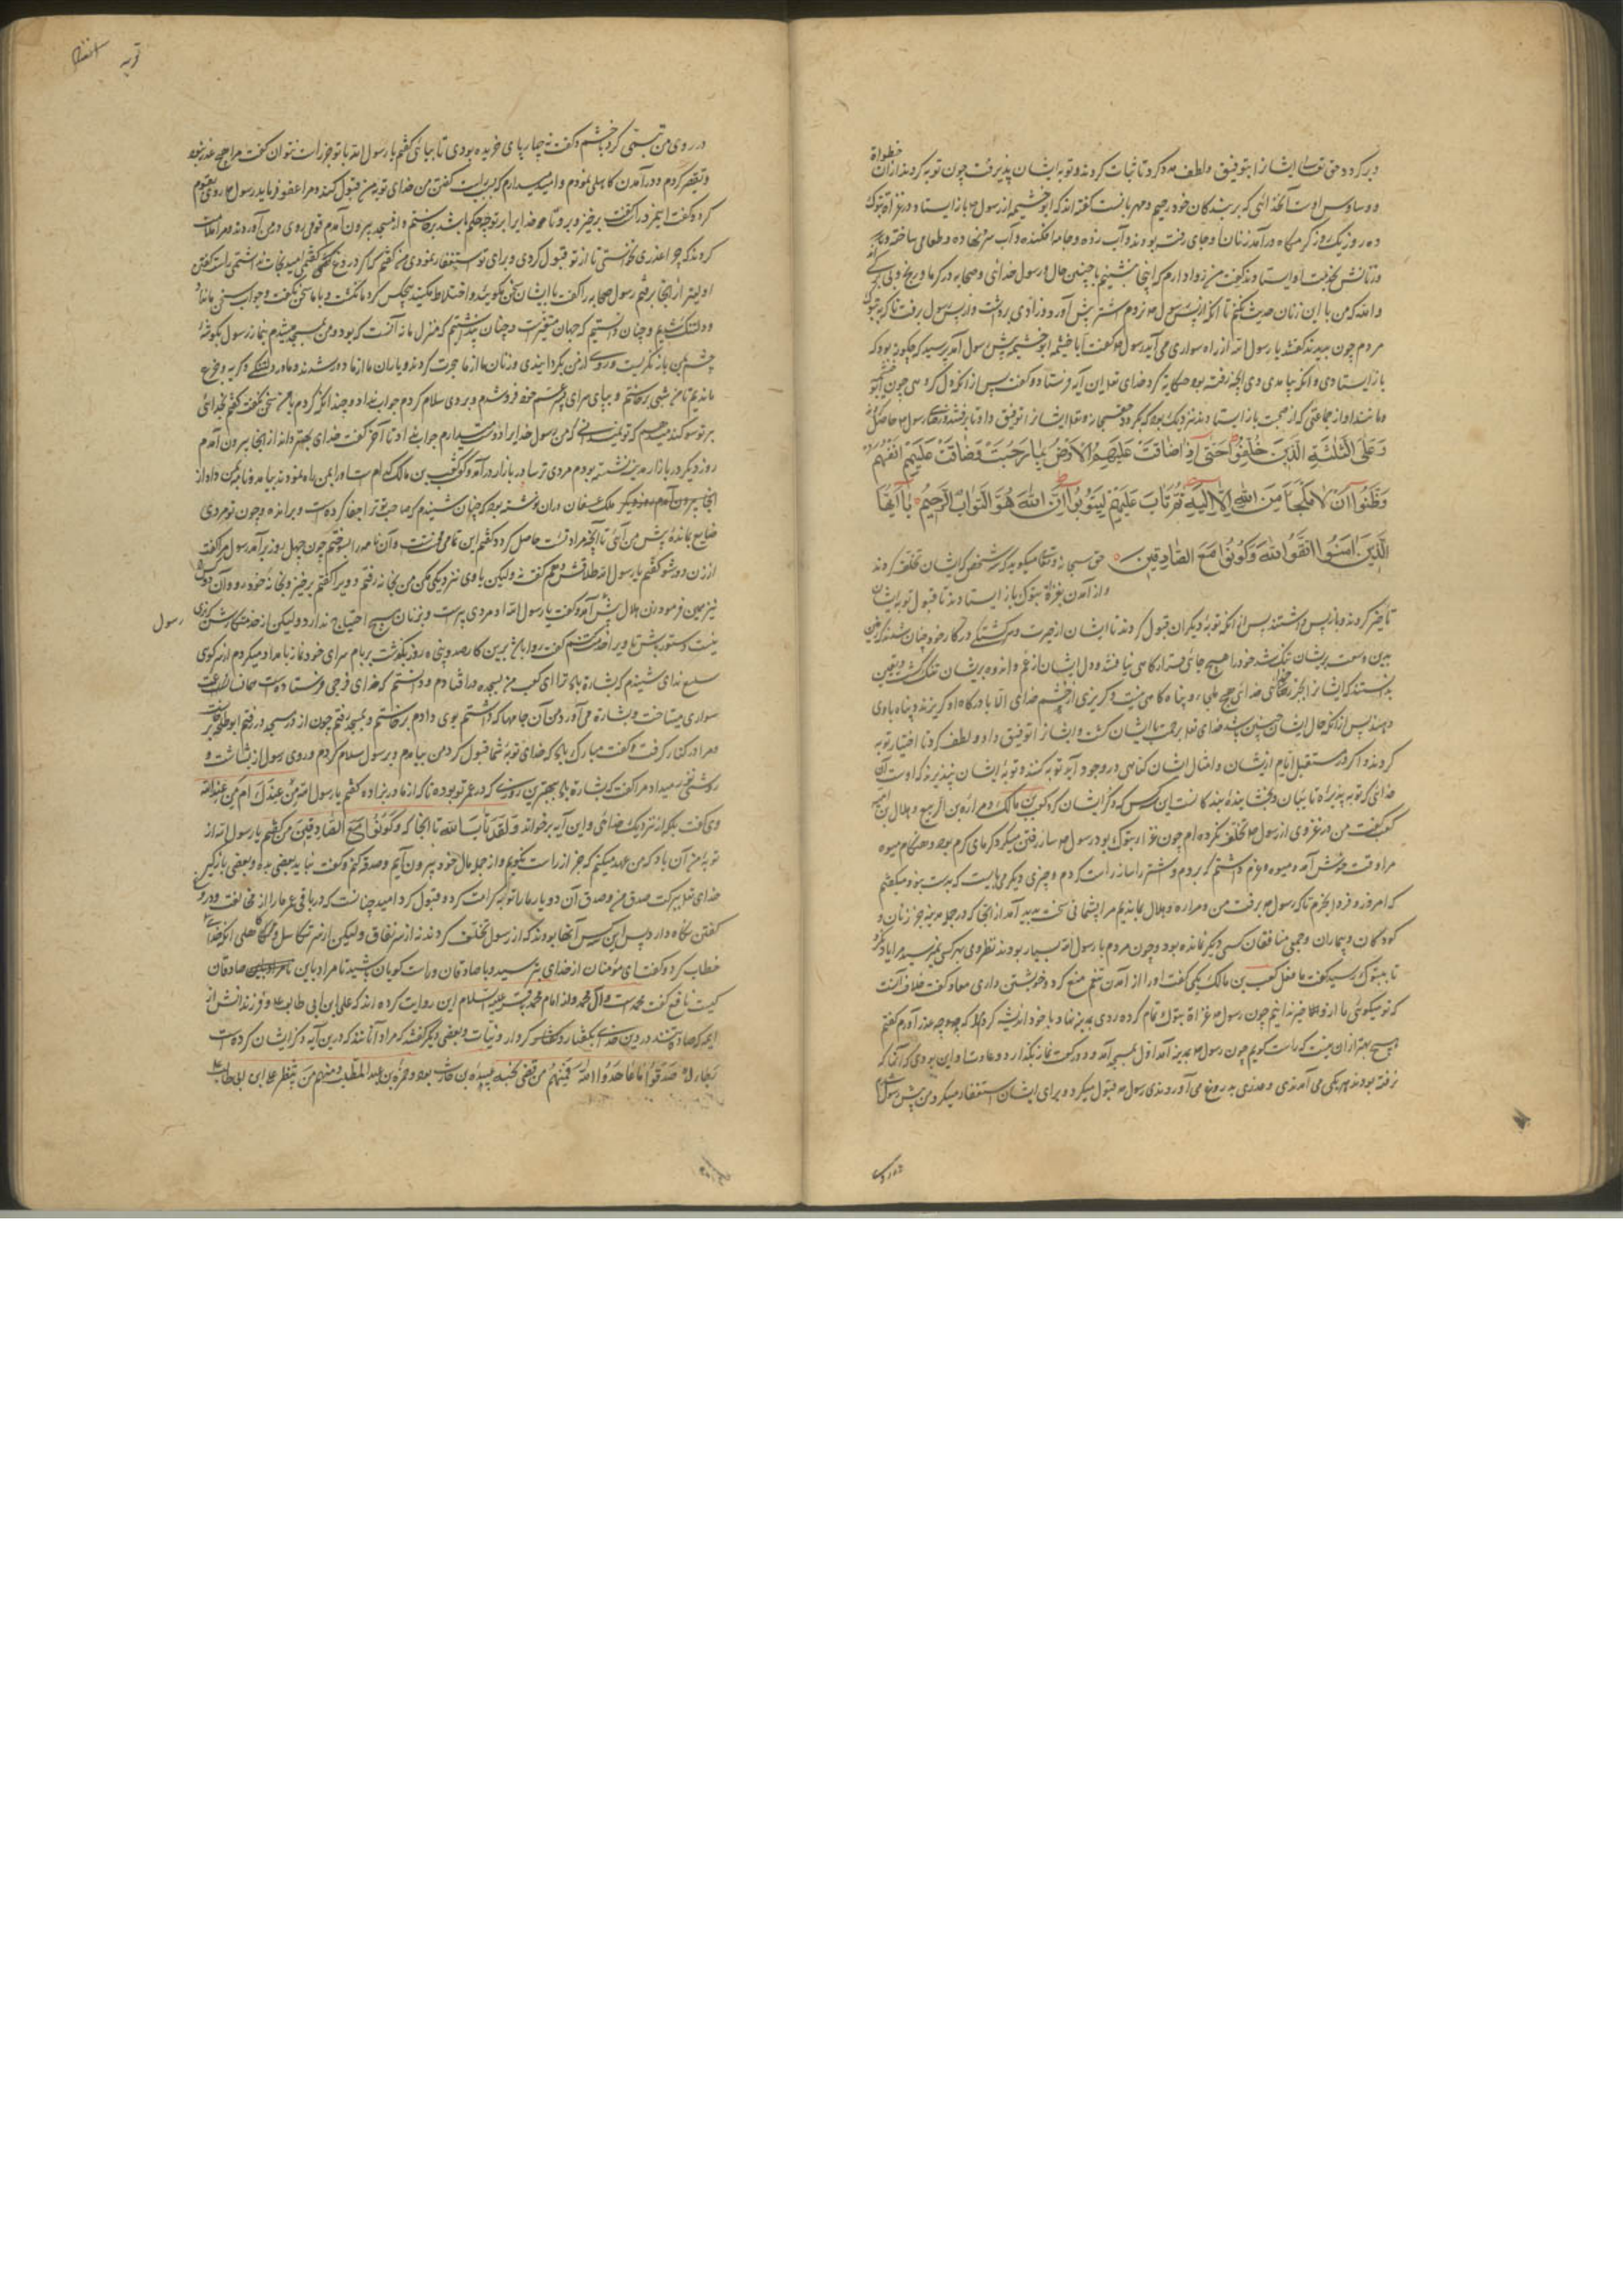 دیر کرد و حق تعالی ایشانرا بتوفیق و لطف مدد کرد تا ثبات کردند و توبه ایشان پذیرفت چون توبه کردند از آن خطوات
و وساوس اوست آنخدائی که بر بندگان خود رحیم و مهربانست گفته اند که ابوخثیمه از رسول ص باز ایستاد در غزاة تبوک
ده روز یک روز گرمگاه درآمد زنان او جای رفته بودند و آب زده و جامه افکنده و آب سرد نهاده و طعامی ساخته
و زنانش بخدمت او ایستادند گفت من روا دارم که اینجا بنشینم با چنین حال و رسول خدای و صحابه در گرما و رنج
والله که من با این زنان حدیث نکنم تا آنکه از پس رسول ص نروم اشتر پیش آورد و زادی برداشت و از پس رسول برفت تا که به تبوک
مردم چون بدیدند گفتند یا رسول الله از راه سواری می آید رسول ص گفت اباخثیمه ابوخثیمه پیش رسول آمد پرسید که چگونه بود که
باز ایستادی و آنکه بیامدی وی آنچه رفته بود حکایت کرد خدای تعالی این آیه فرستاد و گفت پس از آنکه دل گروهی چون
و مانند او از جماعتی که از صحبت باز ایستادند نزدیک بود که بگردد حق سبحانه و تعالی ایشانرا توفیق داد تا برفتند و رضای رسول ص حاصل
وَعَلَى الثَّلٰثَةِ الَّذِينَ خُلِّفُوا حَتَّى إِذَا ضَاقَتْ عَلَيْهِمُ الْأَرْضُ بِمَا رَحُبَتْ وَضَاقَتْ عَلَيْهِمْ أَنْفُسُهُمْ
وَظَنُّوا أَنْ لَا مَلْجَأَ مِنَ اللهِ إِلَّا إِلَيْهِ ثُمَّ تَابَ عَلَيْهِمْ لِيَتُوبُوا إِنَّ اللهَ هُوَ التَّوَّابُ الرَّحِيمُ يَا أَيُّهَا
الَّذِينَ آمَنُوا اتَّقُوا اللهَ وَكُونُوا مَعَ الصَّادِقِينَ حق سبحانه و تعالی میگوید که بر سه شخص که ایشان تخلف کردند
و از آمدن بغزاة تبوک باز ایستادند تا قبول توبه ایشان
تاخیر کردند و باز پس داشتند پس از آنکه توبه دیگران قبول کردند تا ایشان از حیرت و سرگشتگی در کار خود چنان شدند که زمین
بدین وسعت بر ایشان تنگ شد خود را هیچ جای قرارگاهی نیافتند و دل ایشان از غم و اندوه بر ایشان تنگ گشت و یقین
بدانستند که ایشانرا بجز خدای هیچ ملجاء و پناه گاهی نیست و گریزی از خشم خدای الا با درگاه او گریزند و پناه باوی
دهند پس از آنکه حال ایشان چنین شد خدای تعالی برحمت با ایشان گشت و ایشانرا توفیق داد و لطف کرد تا اختیار توبه
کردند و اگر در مستقبل ایام از ایشان و امثال ایشان گناهی در وجود آید توبه کنند و توبه ایشان بپذیرد که اوست آن
خدای که توبه پذیرنده تائبان و بخشاینده بندگانست این سه کس که ذکر ایشان کرد کعب بن مالک و مرارة بن الربیع و هلال بن امیه
کعب گفت من در غزوی از رسول ص تخلف نکرده ام چون غزاء تبوک بود رسول ص ساز رفتن میکرد گرمای گرم بود و هنگام میوه
مرا وقت خوش آمد و میوه و عزم داشتم که بروم و اشتر را ساز راست کردم و چیزی دیگر می بایست که بدست بود و میگفتم
که امروز و فردا بخرم تا که رسول ص برفت من و مراره و هلال بماندیم مرا پشیمانی سخت پدید آمد از آنجا که در جمله مدینه جز زنان و
کودکان و بیماران و جمعی منافقان کسی دیگر نمانده بود و چون مردم با رسول الله بسیار بودند نظر وی بهر کسی نمیرسید مرا یاد نکرد
تا بتبوک رسید گفت ما فعل کعب بن مالک یکی گفت او را از آمدن تنعم منع کرد و خویشتن داری معاذ گفت خلاف آنست
که تو میگوئی ما از و الا خیر ندانیم چون رسول ص غزاة تبوک تمام کرده روی به مدینه نهاد با خود اندیشه کردم که چه عذر آورم گفتم
هیچ بهتر از آن نیست که راست گویم چون رسول ص بمدینه آمد اول بمسجد آمد و دو رکعت نماز بگذارد و عادت او این بودی و آنها که
نرفته بودند هر یکی می آمدندی و عذری به دروغ می آوردندی رسول ص قبول میکرد و برای ایشان استغفار میکرد من پیش رسول
در روی
توبه
در روی من تبسمی کرد بخشم و گفت نه چارپای خریده بودی تا بیائی گفتم یا رسول الله با تو جز راست نتوان گفت مرا هیچ عذر نبود
و تقصیر کردم و در آمدن کاهلی نمودم و امید میدارم که خدای توبه من قبول کند و مرا عفو فرماید رسول ص روی بقوم
کرد و گفت این مرد راست گفت برخیز و برو تا خدایرا بر تو چه حکم باشد برخاستم و از مسجد بیرون آمدم قومی روی در من آوردند و مرا ملامت
کردند که چرا عذری نخواستی تا از تو قبول کردی و برای تو استغفار نمودی من گفتم که اگر دروغ گفتمی امید نجات نداشتمی
او لیتر از آنجا برفتم رسول صحابه را گفت با ایشان سخن مگوئید و اختلاط مکنید هیچکس گرد ما نگشت و با ما سخن نگفت و جواب سخن ما نداد
و دلتنگ شدیم و چنان دانستیم که جهان متغیرست و چنان پنداشتیم که منزل ما نه آنست که بود و من بمسجد میشدم بنماز رسول بگوشه
چشم بمن باز نگریست و روی از من بگردانیدی و زنان ما از ما هجرت کردند و یاران ما از ما دور شدند و ما در دلتنگی و گریه و جزع
بماندیم تا من شبی برخاستم و بپای سرای پسر عم خود فرو شدم و بر وی سلام کردم جواب نداد و چندانکه کردم با من سخن نگفت گفتم بخدائی
بر تو سوگند میدهم که تو نمیدانی که من رسول خدایرا دوست میدارم جواب نداد تا آخر گفت خدای بهتر داند از آنجا بیرون آمدم
روز دیگر در بازار مدینه نشسته بودم مردی ترسا در بازار درآمد و گفت کعب بن مالک کدام است او را بمن راه نمودند بیامد و نامه بمن داد از
ملک غسان در آن نوشته بود که چنان شنیدم که صاحب تو ترا جفا کرده است و براند و چون تو مردی
ضایع بماند پیش من آئی تا آنچه مراد تست حاصل کرد و گفتم این تمامی محنتست و آن نامه را بسوختم چون چهل روز برآمد رسول مرا گفت
از زن دور شو گفتم یا رسول الله طلاقش دهم گفت نه ولیکن با وی نزدیکی مکن من بخانه رفتم و ویرا گفتم برخیز و بخانه خود رو و آن دو کس را
نیز همین فرمود زن هلال پیش آمد و گفت یا رسول الله او مردی پیرست و بزنان هیچ احتیاج ندارد ولیکن از خدمتکارش گزیری
رسول
نیست دستور باش تا ویرا خدمت کنم گفت روا باشد برین کار صد و پنجاه روز بگذشت بر بام سرای خود نماز بامداد میکردم از سر کوی
سلع ندای شنیدم که بشارة باد ترا ای کعب من بسجده درافتادم و دانستم که خدای فرجی فرستاده است
سواری میتاخت و بشارة می آورد من آن جامها که داشتم بوی دادم برخاستم و بمسجد رفتم چون از در مسجد در رفتم ابو طلحه برخاست
و مرا در کنار گرفت و گفت مبارک باد که خدای توبه شما قبول کرد من بیامدم و بر رسول سلام کردم و روی رسول از بشاشت و
روشنی میدرخشید و مرا گفت که بشارة باد بهترین روزی که در عمر تو بوده تا که از مادر بزاده گفتم یا رسول الله مِن عِندِكَ ام مِن عِندِ اللهِ
وی گفت بلکه از نزدیک خدای و این آیه بر خواند و لَقَد تَابَ اللهُ تا آنجا که وَكُونُوا مَعَ الصَّادِقِينَ من گفتم یا رسول الله از
توبه من آن باد که من عهد میکنم که جز از راست نگویم و از جمله مال خود بیرون آیم و صدقه کنم گفت نباید بعضی بده و بعضی باز گیر
خدای تعالی ببرکت صدق من و صدق آن دو یار ما را توبه کرامت کرد و قبول کرد امید چنانست که در باقی عمر ما را از مخالفت و دروغ
گفتن نگاه دارد پس این سه کس آنها بودند که از رسول تخلف کردند نه از سر نفاق ولیکن از سر تکاسل و کاهلی آنکه خدای
خطاب کرد و گفت ای مؤمنان از خدای بترسید و با صادقان و راست گویان باشید تا مراد باین صادقان
کیست نافع گفت محمد است و آل محمد و از امام محمد باقر علیه السلام این روایت کرده اند که علی ابن ابی طالب ع و فرزندانش از
ایمه که صادقند در دین خدای بگفتار و کردار و نیات و بعضی دیگر گفتند که مراد آنانند که درین آیه ذکر ایشان کرده است
رِجَالٌ صَدَقُوا مَا عَاهَدُوا اللهَ فَمِنْهُم مَن قَضَى نَحبَه عبیدة بن حارث بود و حمزة بن عبد المطلب و مِنهُم مَن يَنتَظِر علی ابن ابی طالب ع